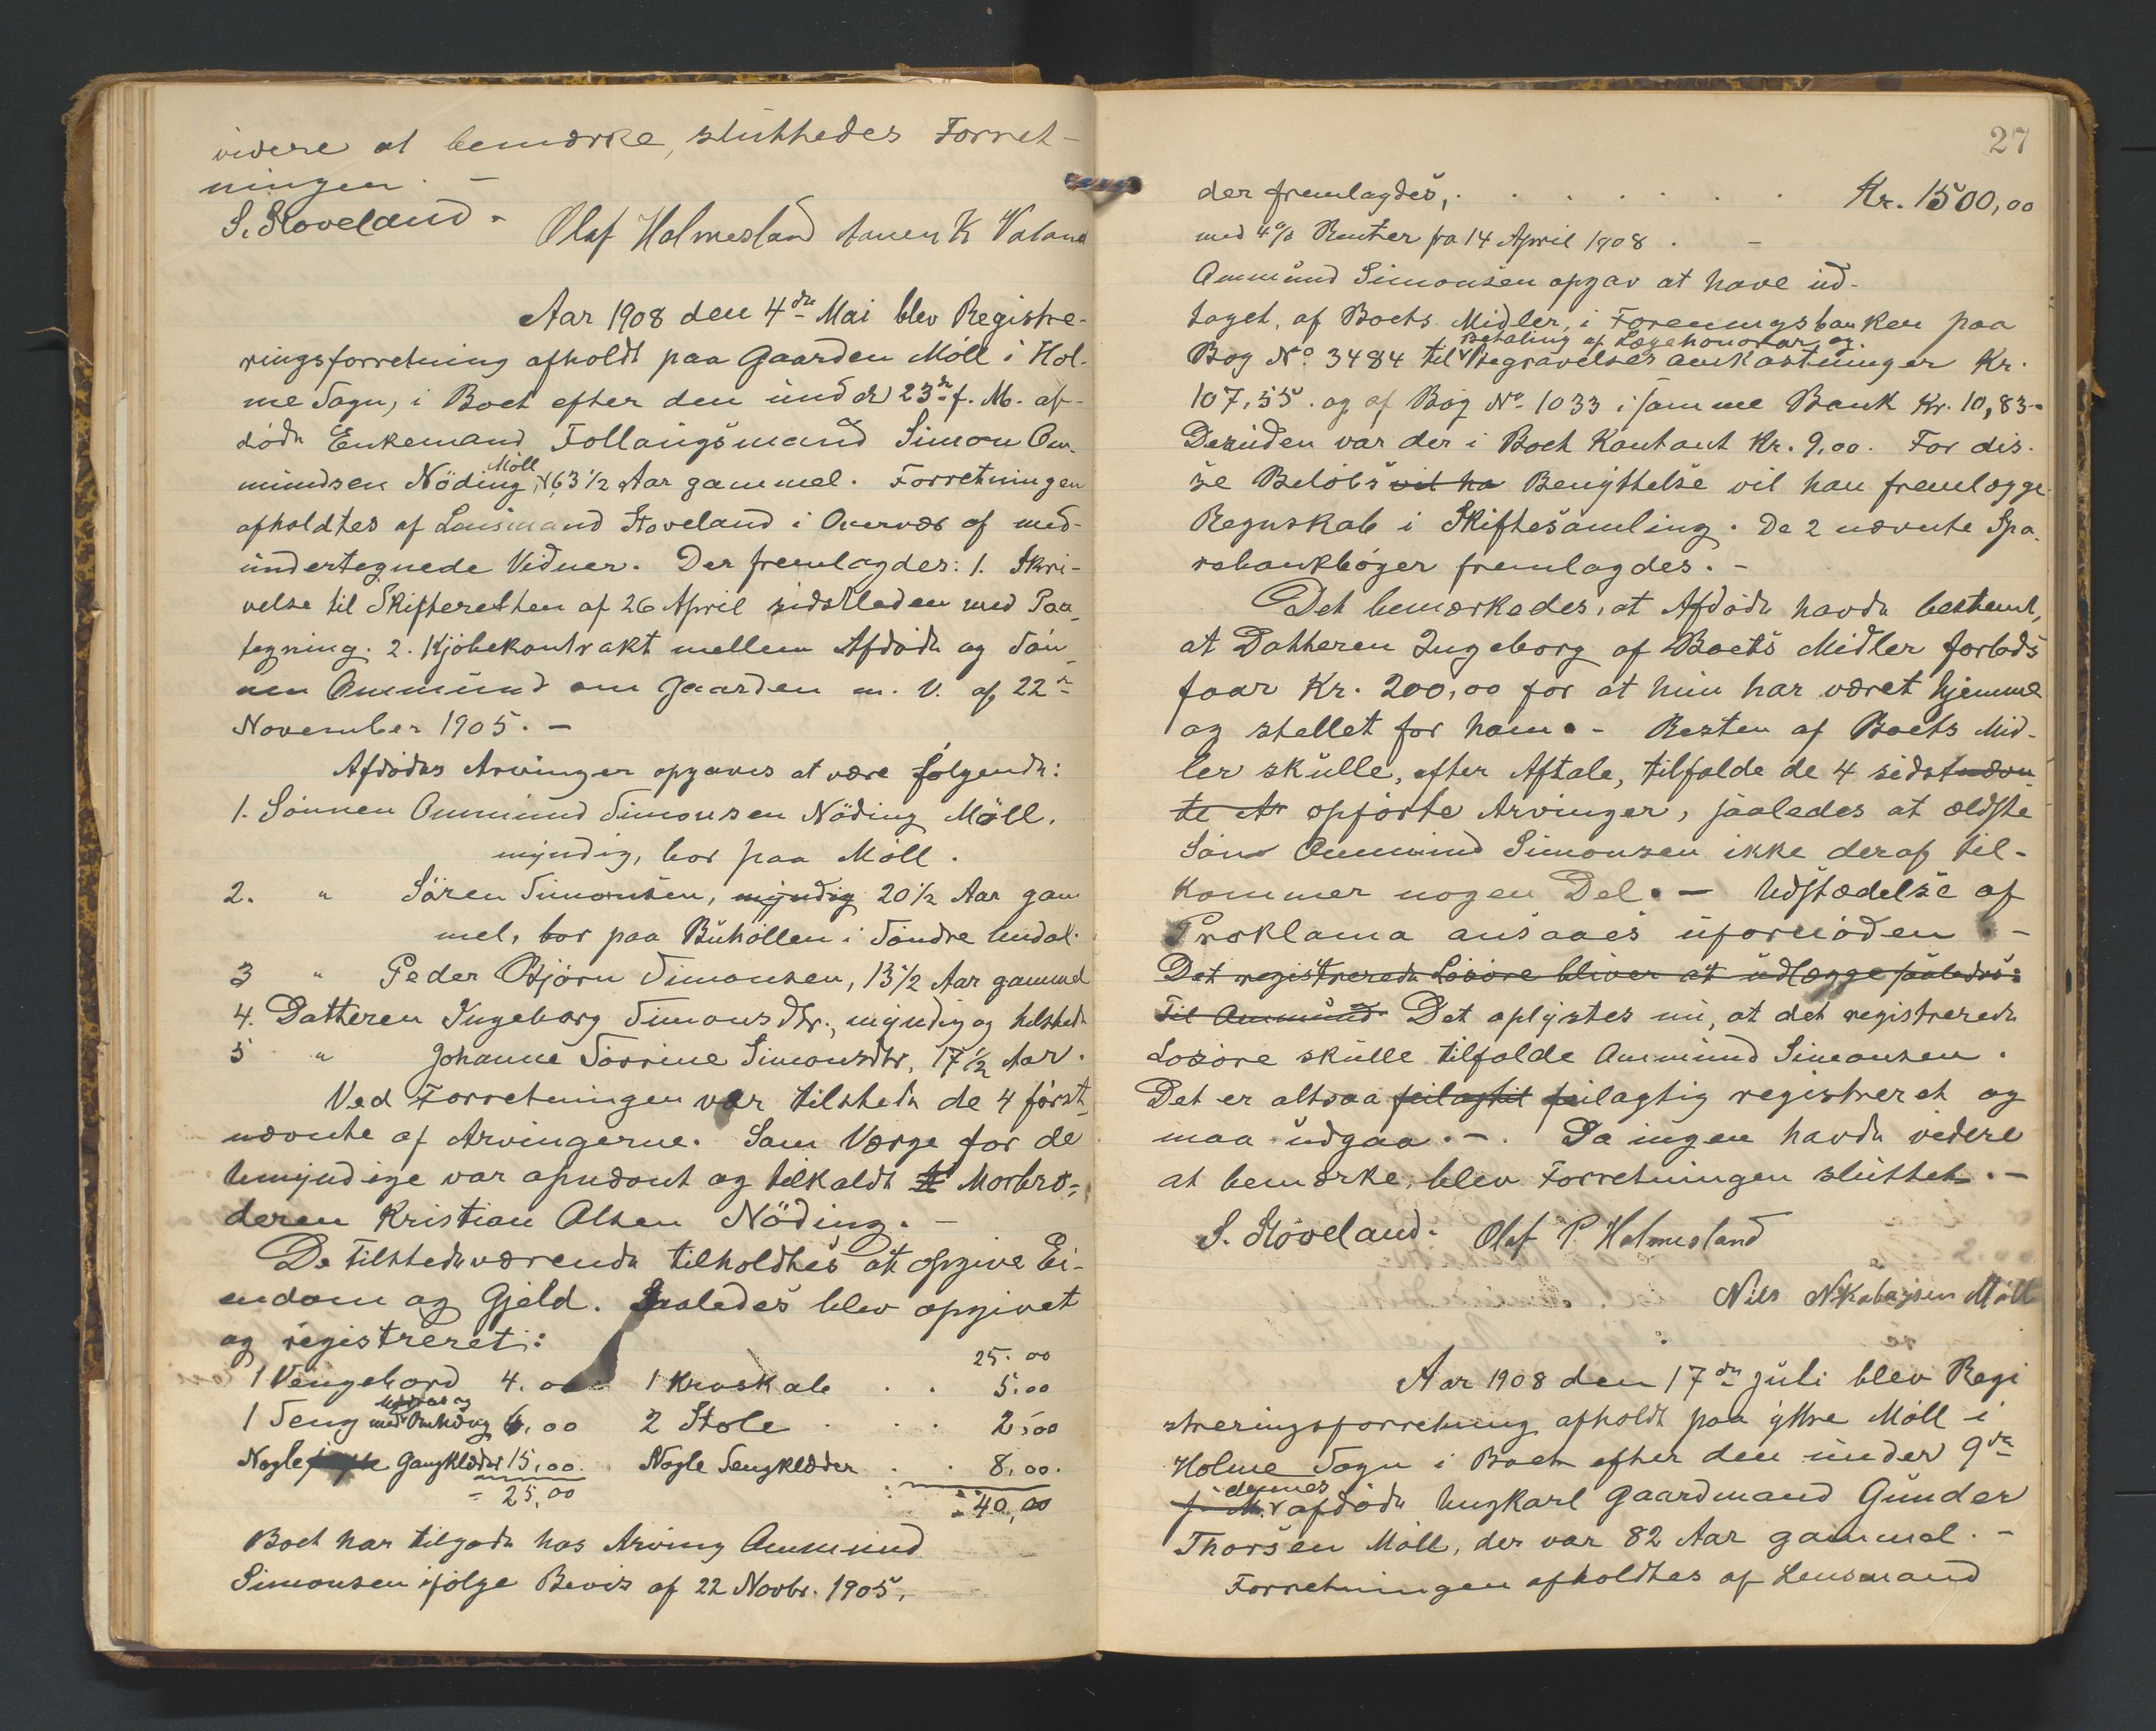 videre at bemærke, sluttedes Forret-
ningen. -
S. Stoveland. Olaf Holmesland K Valand
Aar 1908 den 4de Mai blev Registre-
ringsforretning afholdt paa Gaarden Möll i Hol-
me Sogn, i Boet efter den under 23de f. M. af-
döde Enkemand Follaugsmand Simon Om-
mundsen Nöding, Möll 63 1/2 Aar gammel. Forretningen
afholdtes af Lensmand Stoveland i Overvær af med-
undertegnede Vidner. Der fremlagdes: 1. Skri-
velse til Skifteretten af 26 April sidstleden med Paa-
tegning. 2. Kjöbekontrakt mellem Afdöde og Sön-
nen Ommund om Gaarden m. V. af 22de
November 1905. -
Afdödes Arvinger opgaves at være fölgende:
1. Sönnen Ommund Simonsen Nöding Möll,
myndig, bor paa Möll.
2. " Sören Simonsen, myndig 20 1/2 Aar gam
mel, bor paa Buhöllen i Söndre Undal.
3 " Peder Björn Simonsen, 13 1/2 Aar gammel
4. Datteren Ingeborg Simonsdtr., myndig og tilstede
5 " Johanne Sörine Simonsdtr, 17 1/2 Aar.
Ved Forretningen var tilstede de 4 först-
nævnte af Arvingerne. Som Værge for de
Umyndige var opnævnt og tilkaldt Morbro-
deren Kristian Olsen Nöding. -
De tilstedeværende tilholdtes at opgive Ei-
endom og Gjeld. Saaledes blev opgivet
og registreret:
25.00
1 Vengebord 4.00 1 Kroskab . . 5.00
1 Seng med Madras og Omhæng 6,00 2 Stole . . . 2,00
Nogle Gangklæder 15,00. Nogle Sengklæder . . 8,00.
= 25,00 = 40,00
Boet har tilgode hos Arving Ommund
Simonsen ifölge Bevis af 22 Novbr. 1905,
27
der fremlagdes, . . . . . . Kr. 1500,00
med 4% Renter fra 14 April 1908 . -
Ommund Simonsen opgav at have ud-
taget, af Boets Midler, i Foreningsbanken paa
Bog No. 3484 til Betaling af Lægehonorar og Begravelsesomkostninger Kr.
107,55. og af Bog No. 1033 i samme Bank Kr. 10,83.
Desuden var der i Boet Kontant Kr. 9,00. For dis-
se Belöbs vil ha Benyttelse vil han fremlægge
Regnskab i Skiftesamling. De 2 nævnte Spa-
rebankböger fremlagdes. -
Det bemærkedes, at Afdöde havde bestemt,
at Datteren Ingeborg af Boets Midler forlods
faar Kr. 200,00 for at hun har været hjemme
og stellet for ham. - Resten af Boets Mid-
ler skulle, efter Aftale, tilfalde de 4 sidstnævn
te Ar opförte Arvinger, saaledes at ældste
Sön Ommund Simonsen ikke deraf til-
kommer nogen Del. - Udstædelse af
Proklama ansaaes ufornöden. -
Det registrerede Lösöre bliver at udlægge saaledes:
Til Ommund Det oplystes nu, at det registrerede
Lösöre skulle tilfalde Ommund Simonsen.
Det er altsaa feilagtit feilagtig registreret og
maa udgaa. -. Da ingen havde videre
at bemærke, blev Forretningen sluttet. -
S. Stoveland. Olaf P Holmesland
Nils Möll
Aar 1908 den 17de Juli blev Regi
streringsforretning afholdt paa ytre Möll i
Holme Sogn i Boet efter den under 9de
f. M. dennes afdöde Ungkarl Gaardmand Gunder
Thorsen Möll, der var 82 Aar gammel. -
Forretningen afholdtes af Lensmand